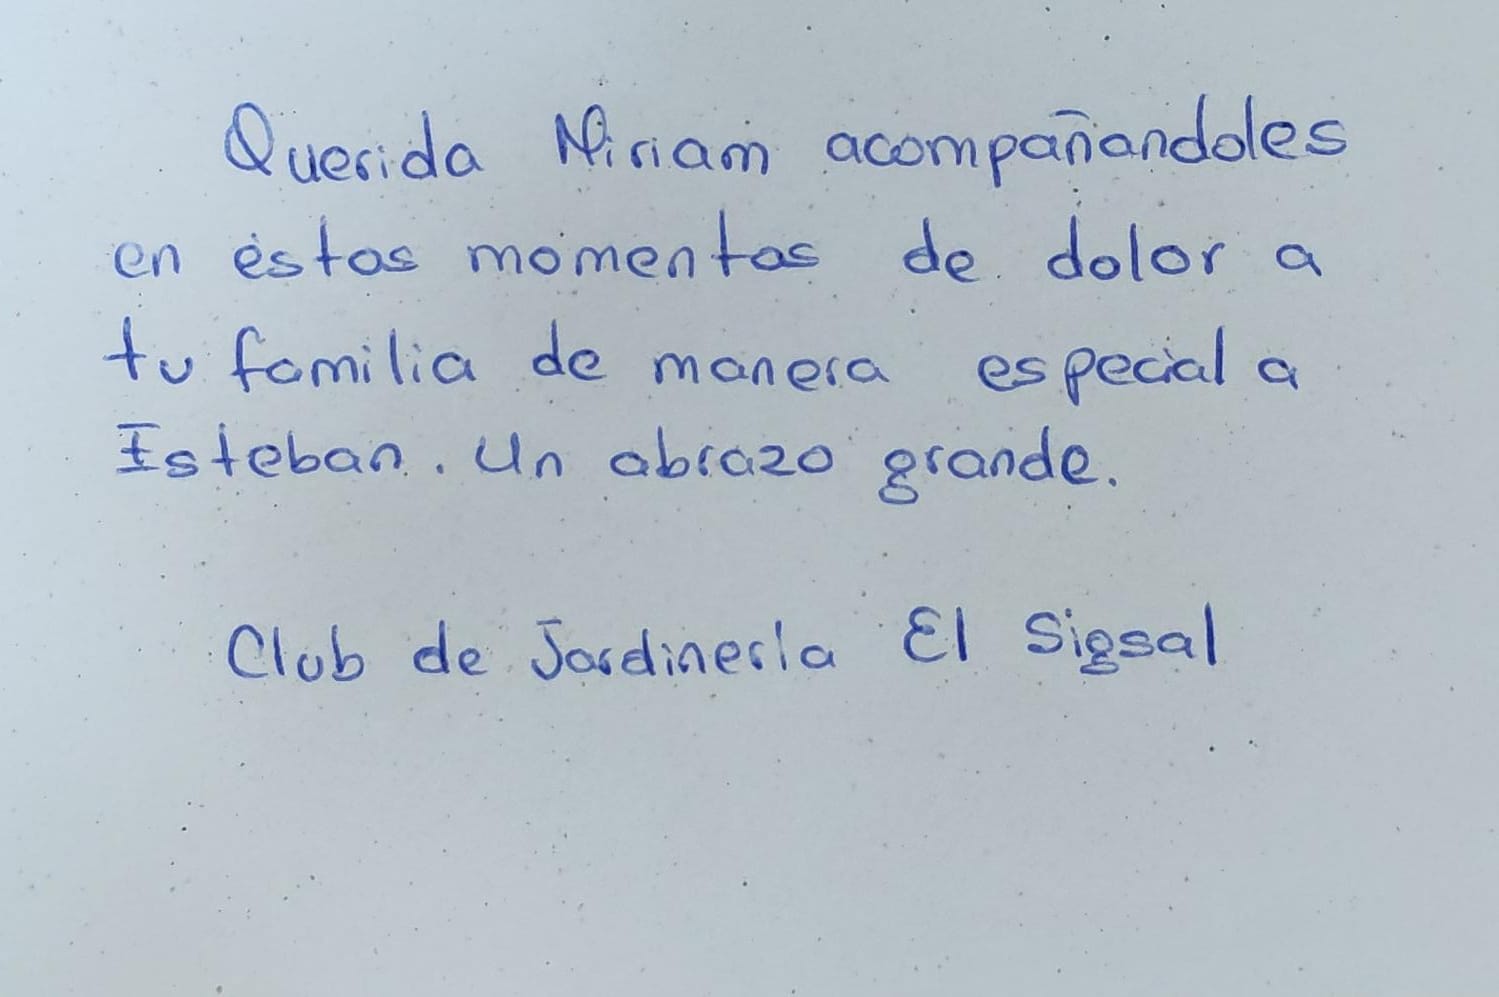 Querida Miriam acompañandoles
en éstos momentos de dolor a
tu familia de manera especial a
Esteban. Un abrazo grande.
Club de Jardinería El Sigsal